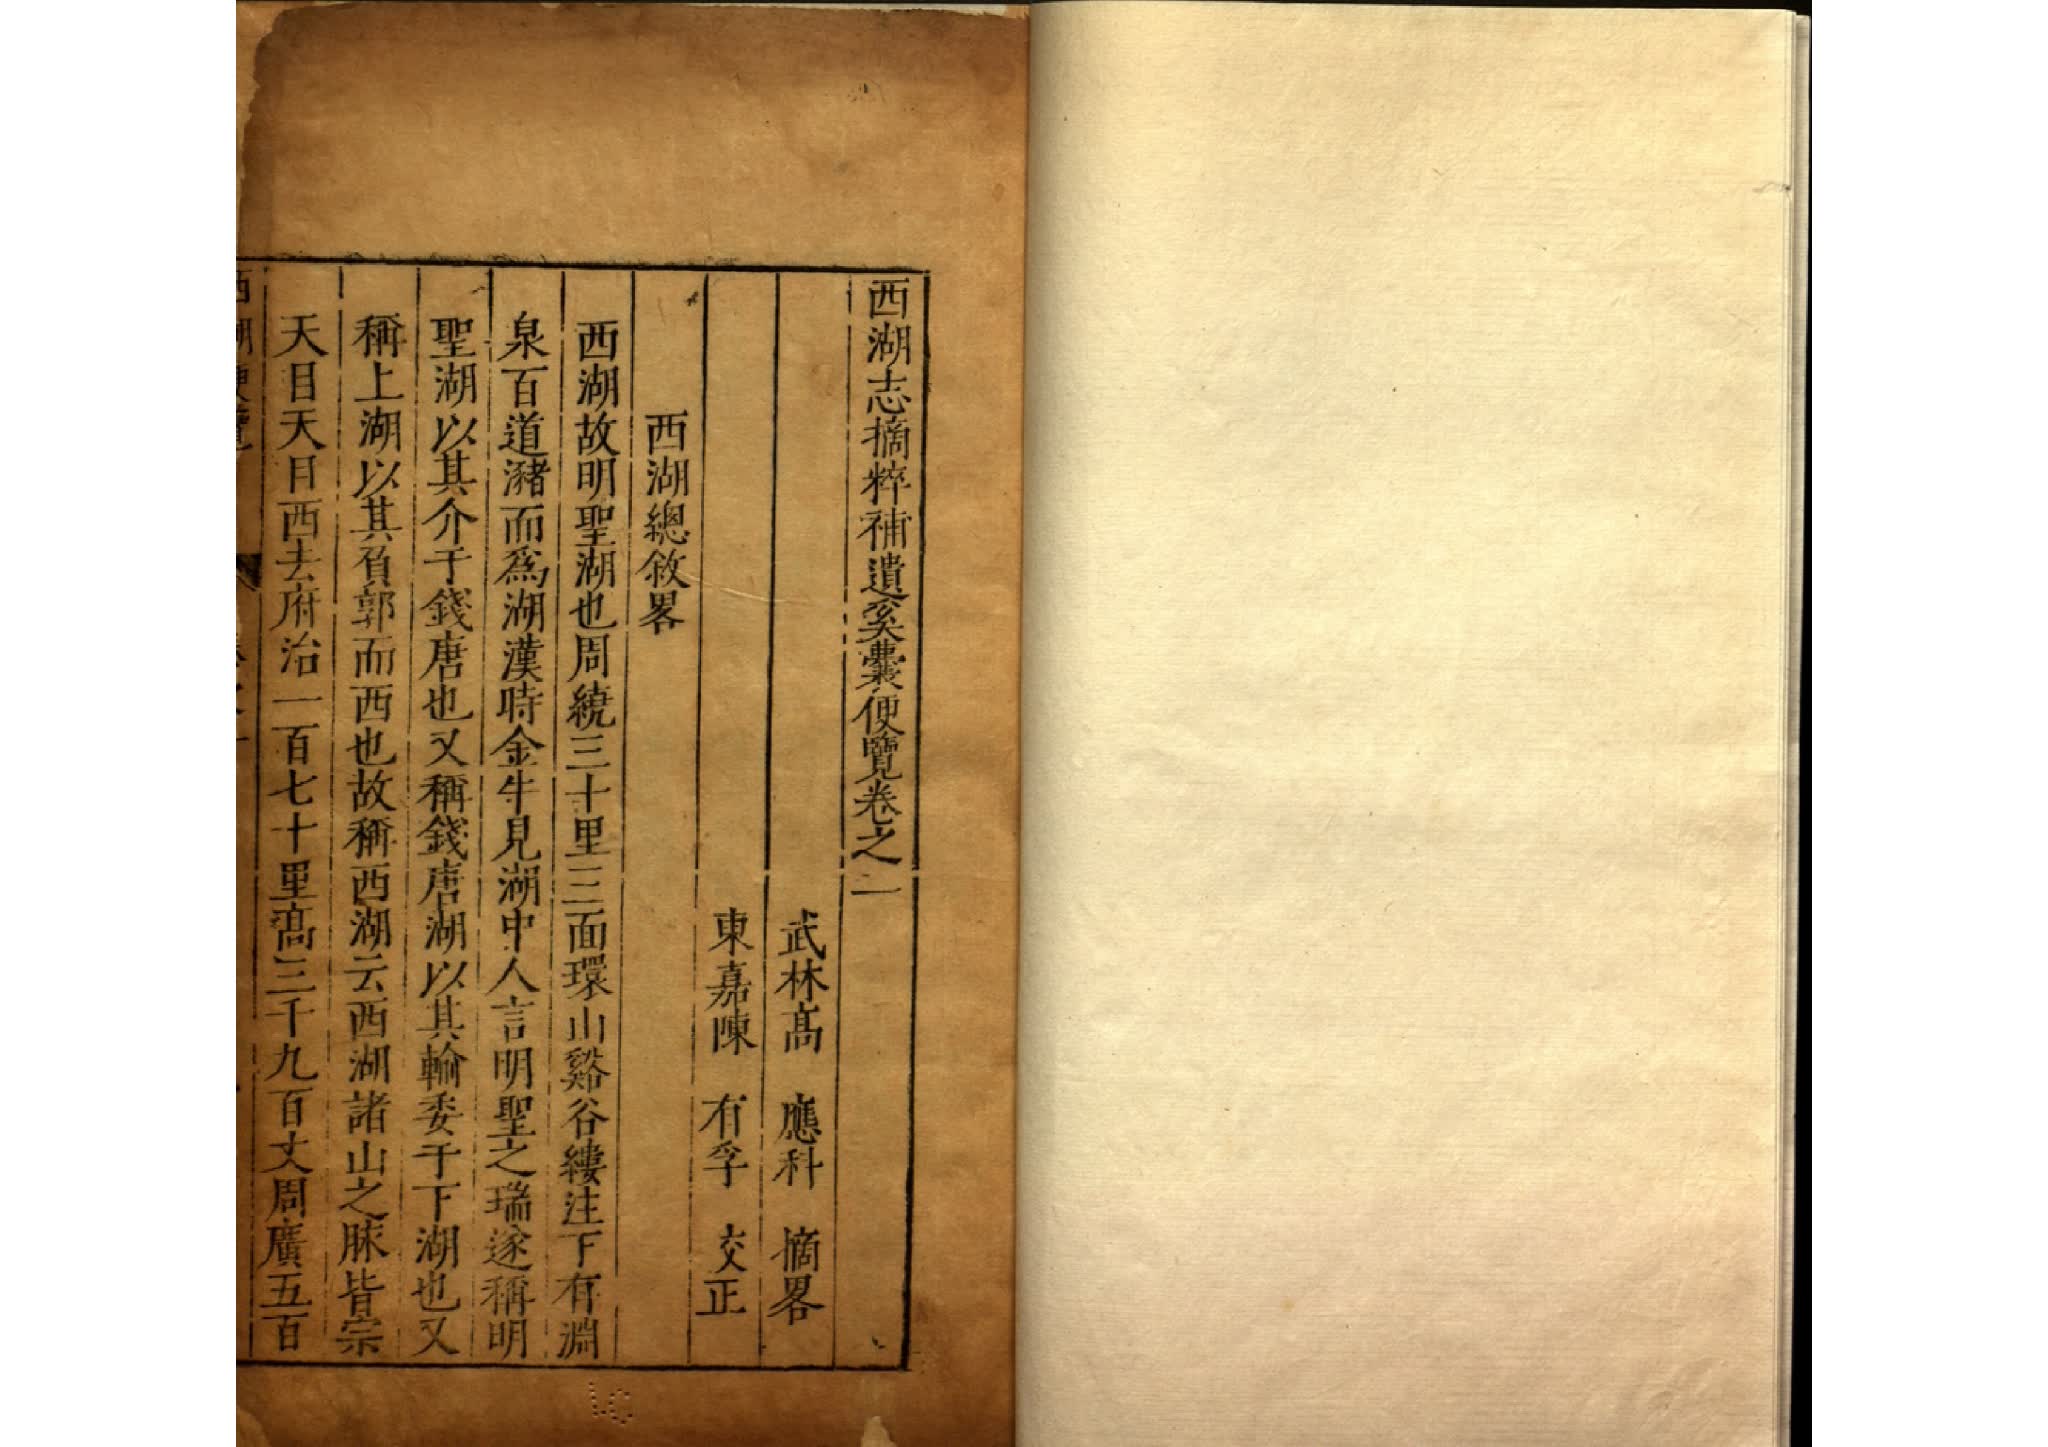 西湖志摘粹補遺奚囊便覽卷之一
武林高 應科 摘畧
東嘉陳 有孚 校正
西湖總敘畧
西湖故明聖湖也周繞三十里三面環山谿谷縷注下有淵
泉百道瀦而爲湖漢時金牛見湖中人言明聖之瑞遂稱明
聖湖以其介于錢唐也又稱錢唐湖以其輸委于下湖也又
稱上湖以其負郭而西也故稱西湖云西湖諸山之脉皆宗
天目天目西去府治一百七十里高三千九百丈周廣五百
西湖便覽